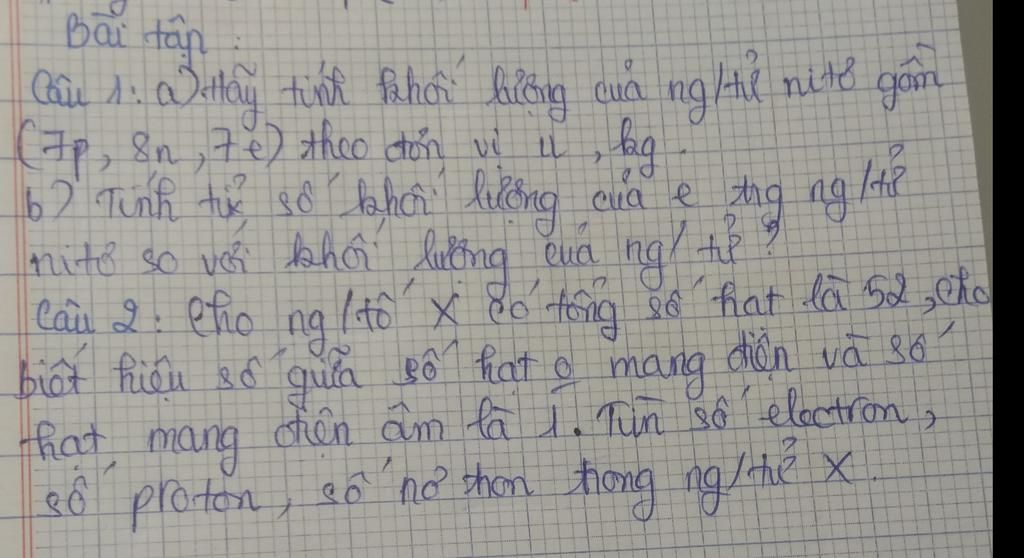 Bài tập :
Câu 1: a) Hãy tính khối lượng của ng/tử nitơ gồm
(7p, 8n, 7e) theo đơn vị u, kg.
b) Tính tỉ số khối lượng của e trg ng/tử
nitơ so với khối lượng của ng/tử?
Câu 2: Cho ng/tố X có tổng số hạt là 52, cho
biết hiệu số giữa số hạt o mang điện và số
hạt mang điện âm là 1. Tìm số electron,
số proton, số nơ tron trong ng/tử X.